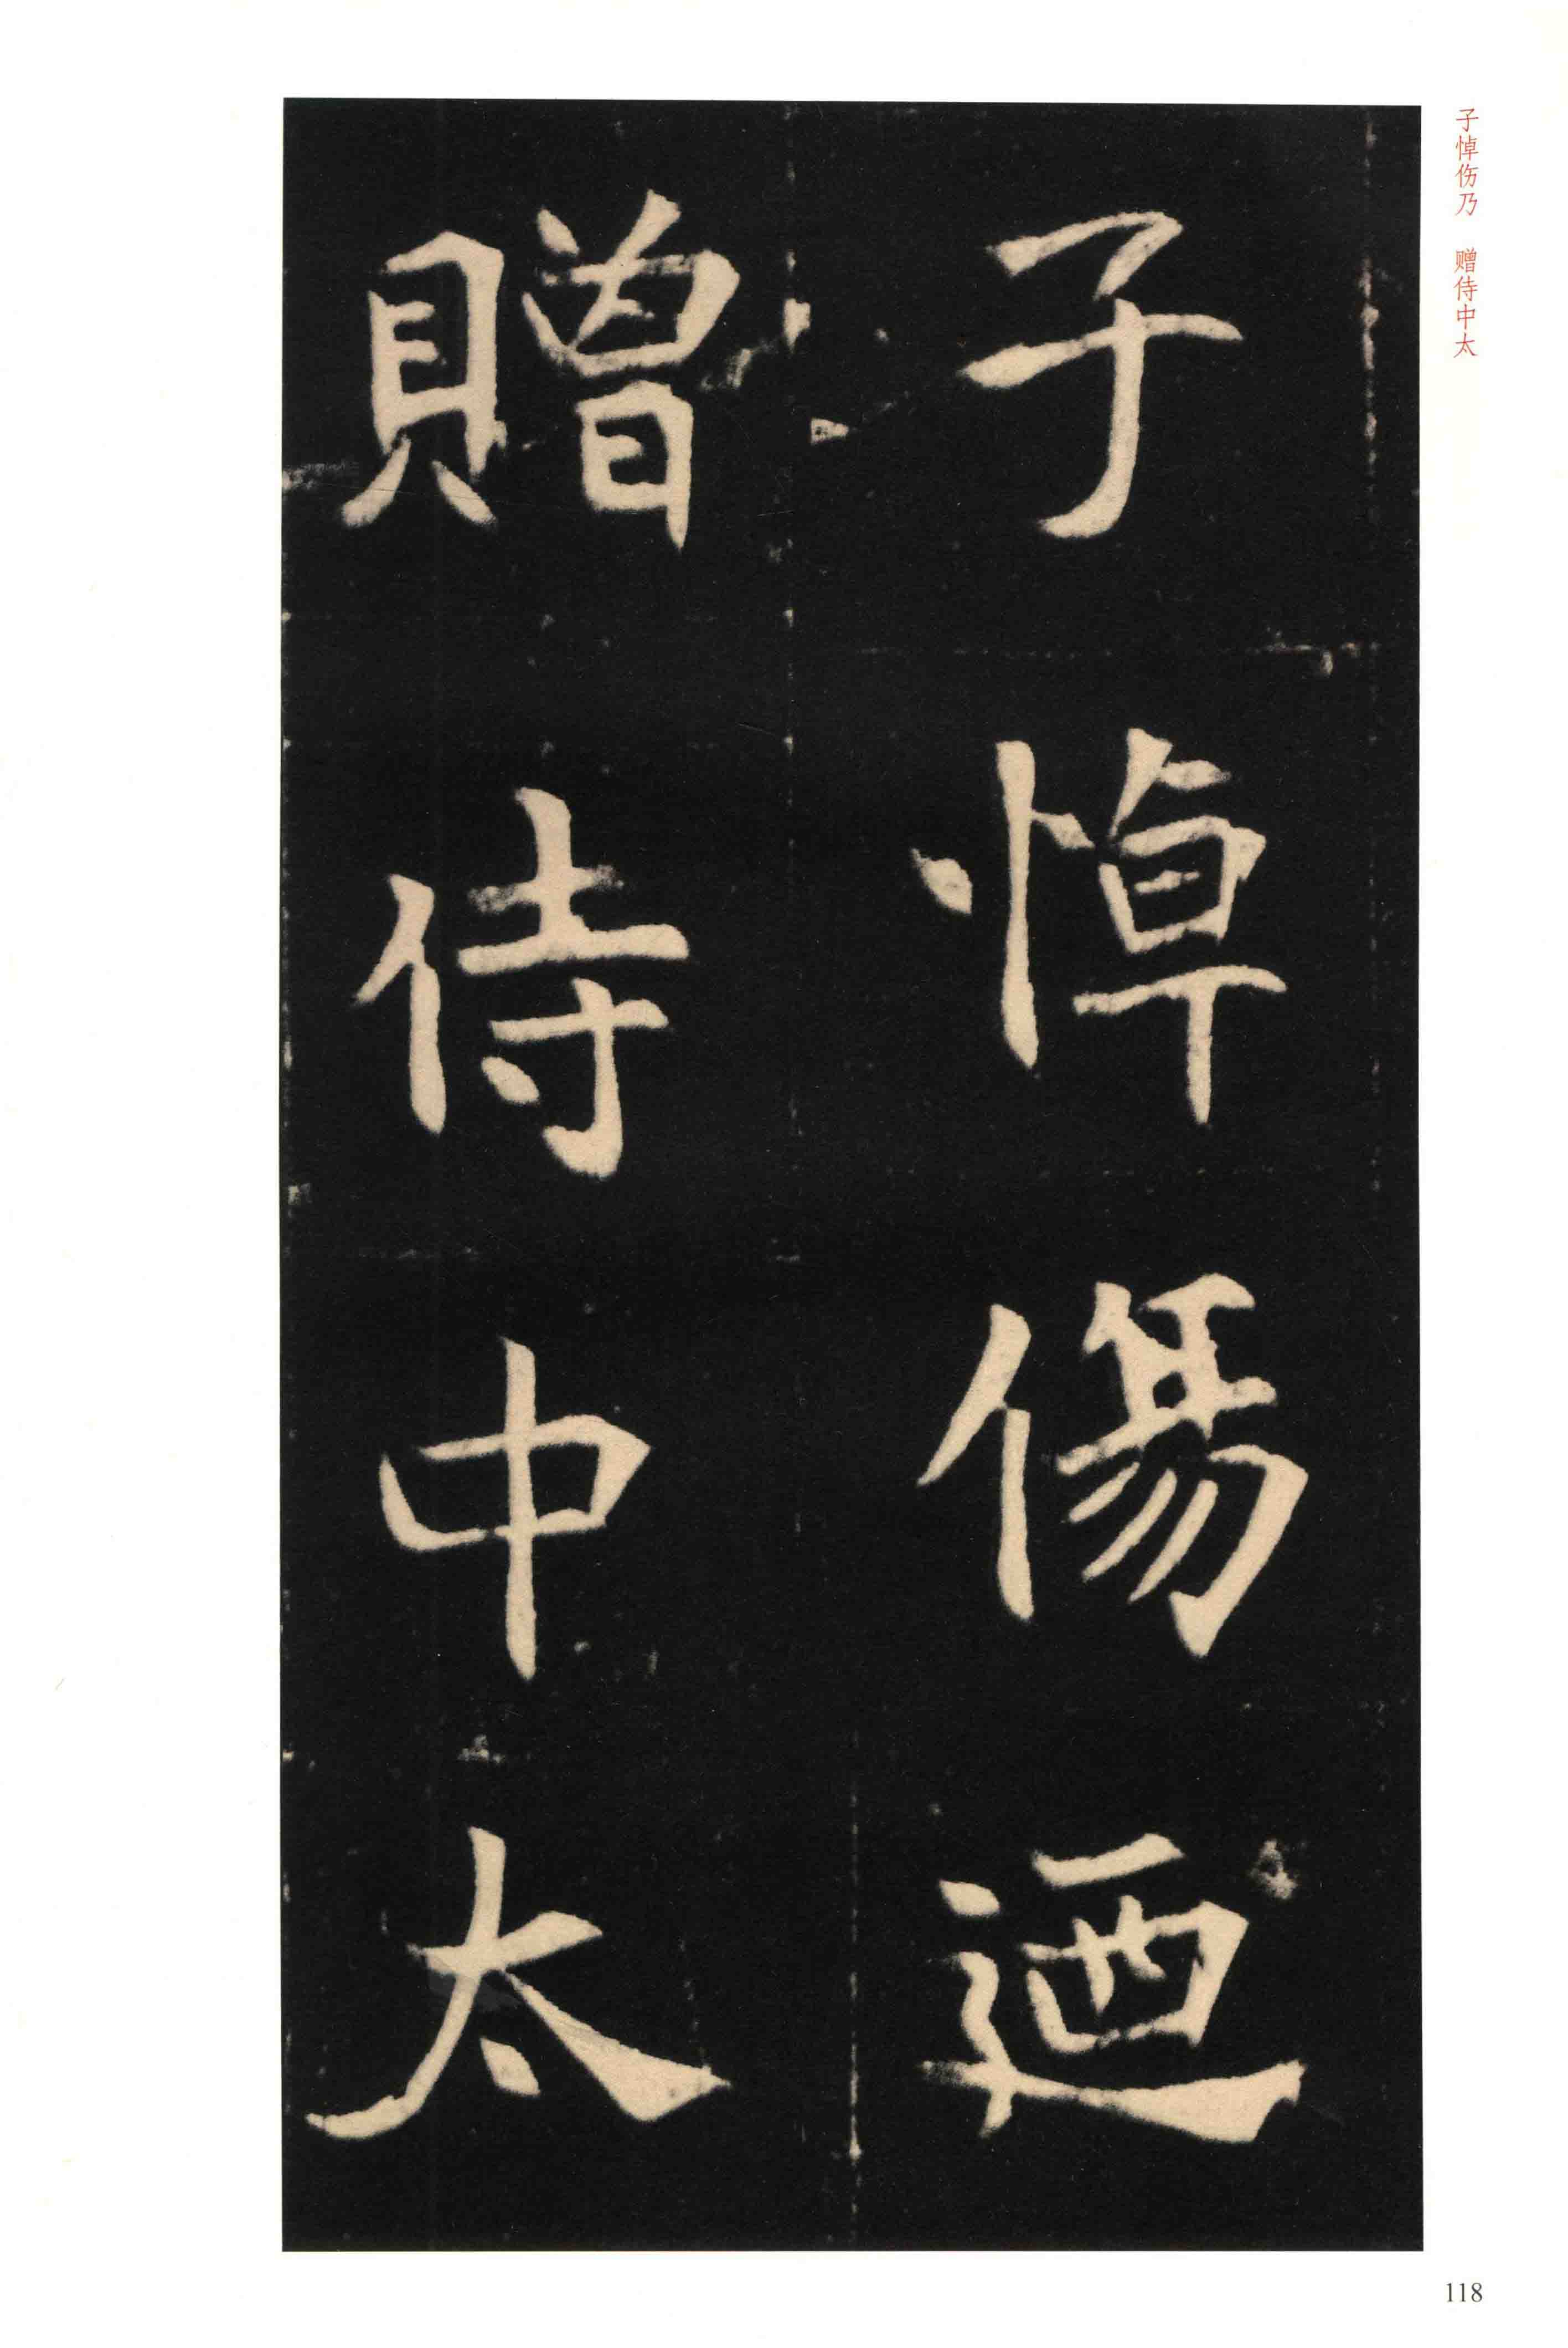 子悼傷迺
贈侍中太
子悼伤乃 赠侍中太
118